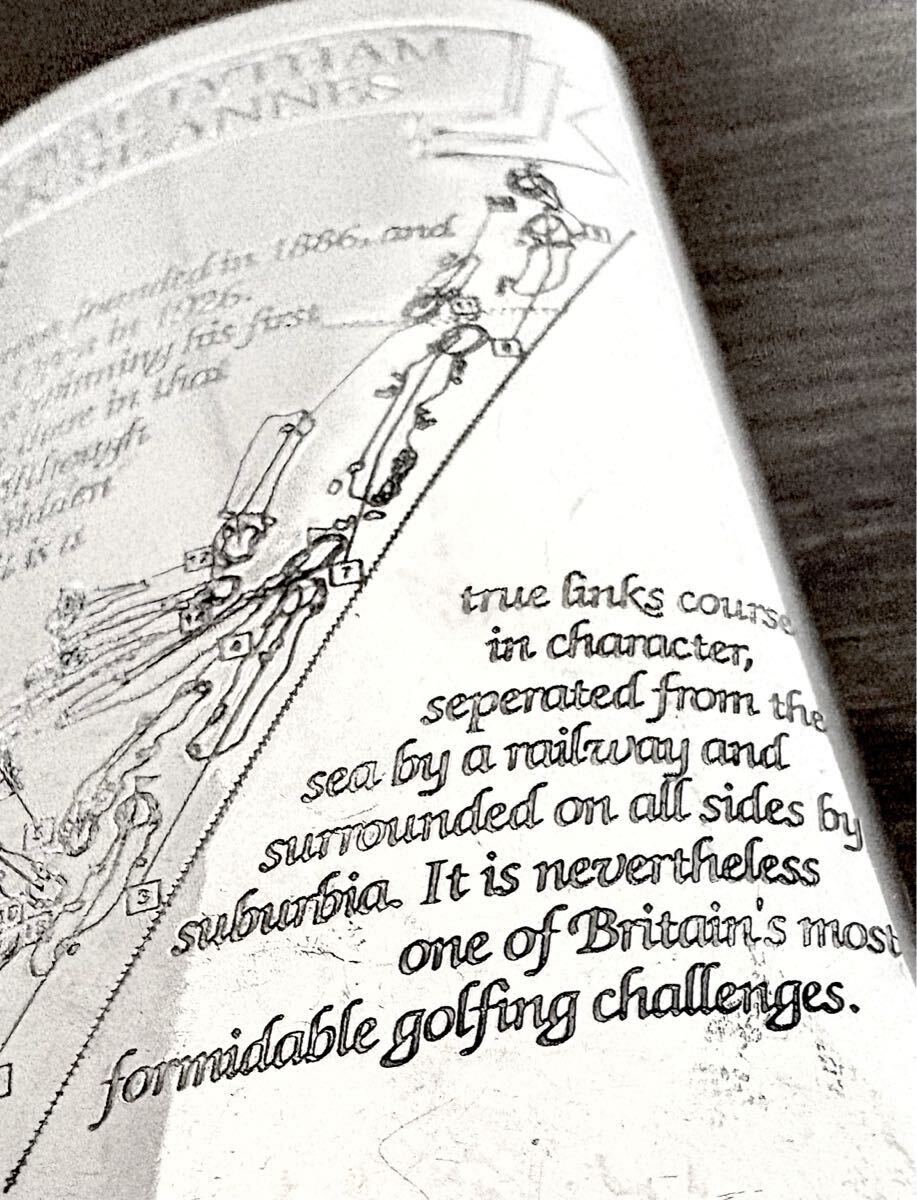 LYTHAM
ST. ANNES
founded in 1886, and
in 1926.
winning his first
there in that
Although
it is a
true links course
in character,
seperated from the
sea by a railway and
surrounded on all sides by
suburbia. It is nevertheless
one of Britain's most
formidable golfing challenges.
7